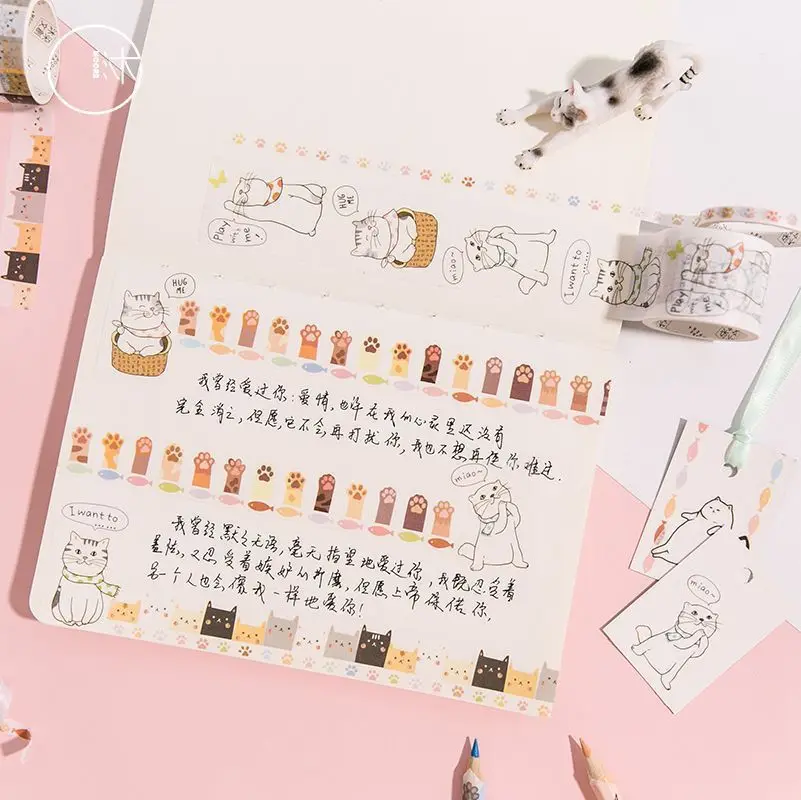 沐
MOOOD
Play
with
me!
HUG
ME
miao~
I want to
......
Play
with
me!
HUG
ME
我曾经爱过你:爱情,也许在我的心灵里还没有
完全消亡,但愿它不会再打扰你,我也不想再使你难过.
miao~
I want to
......
我曾经默默无语,毫无指望地爱过你,我既忍受着
羞怯,又忍受着嫉妒的折磨,但愿上帝保佑你,
另一个人也会像我一样地爱你!
miao~